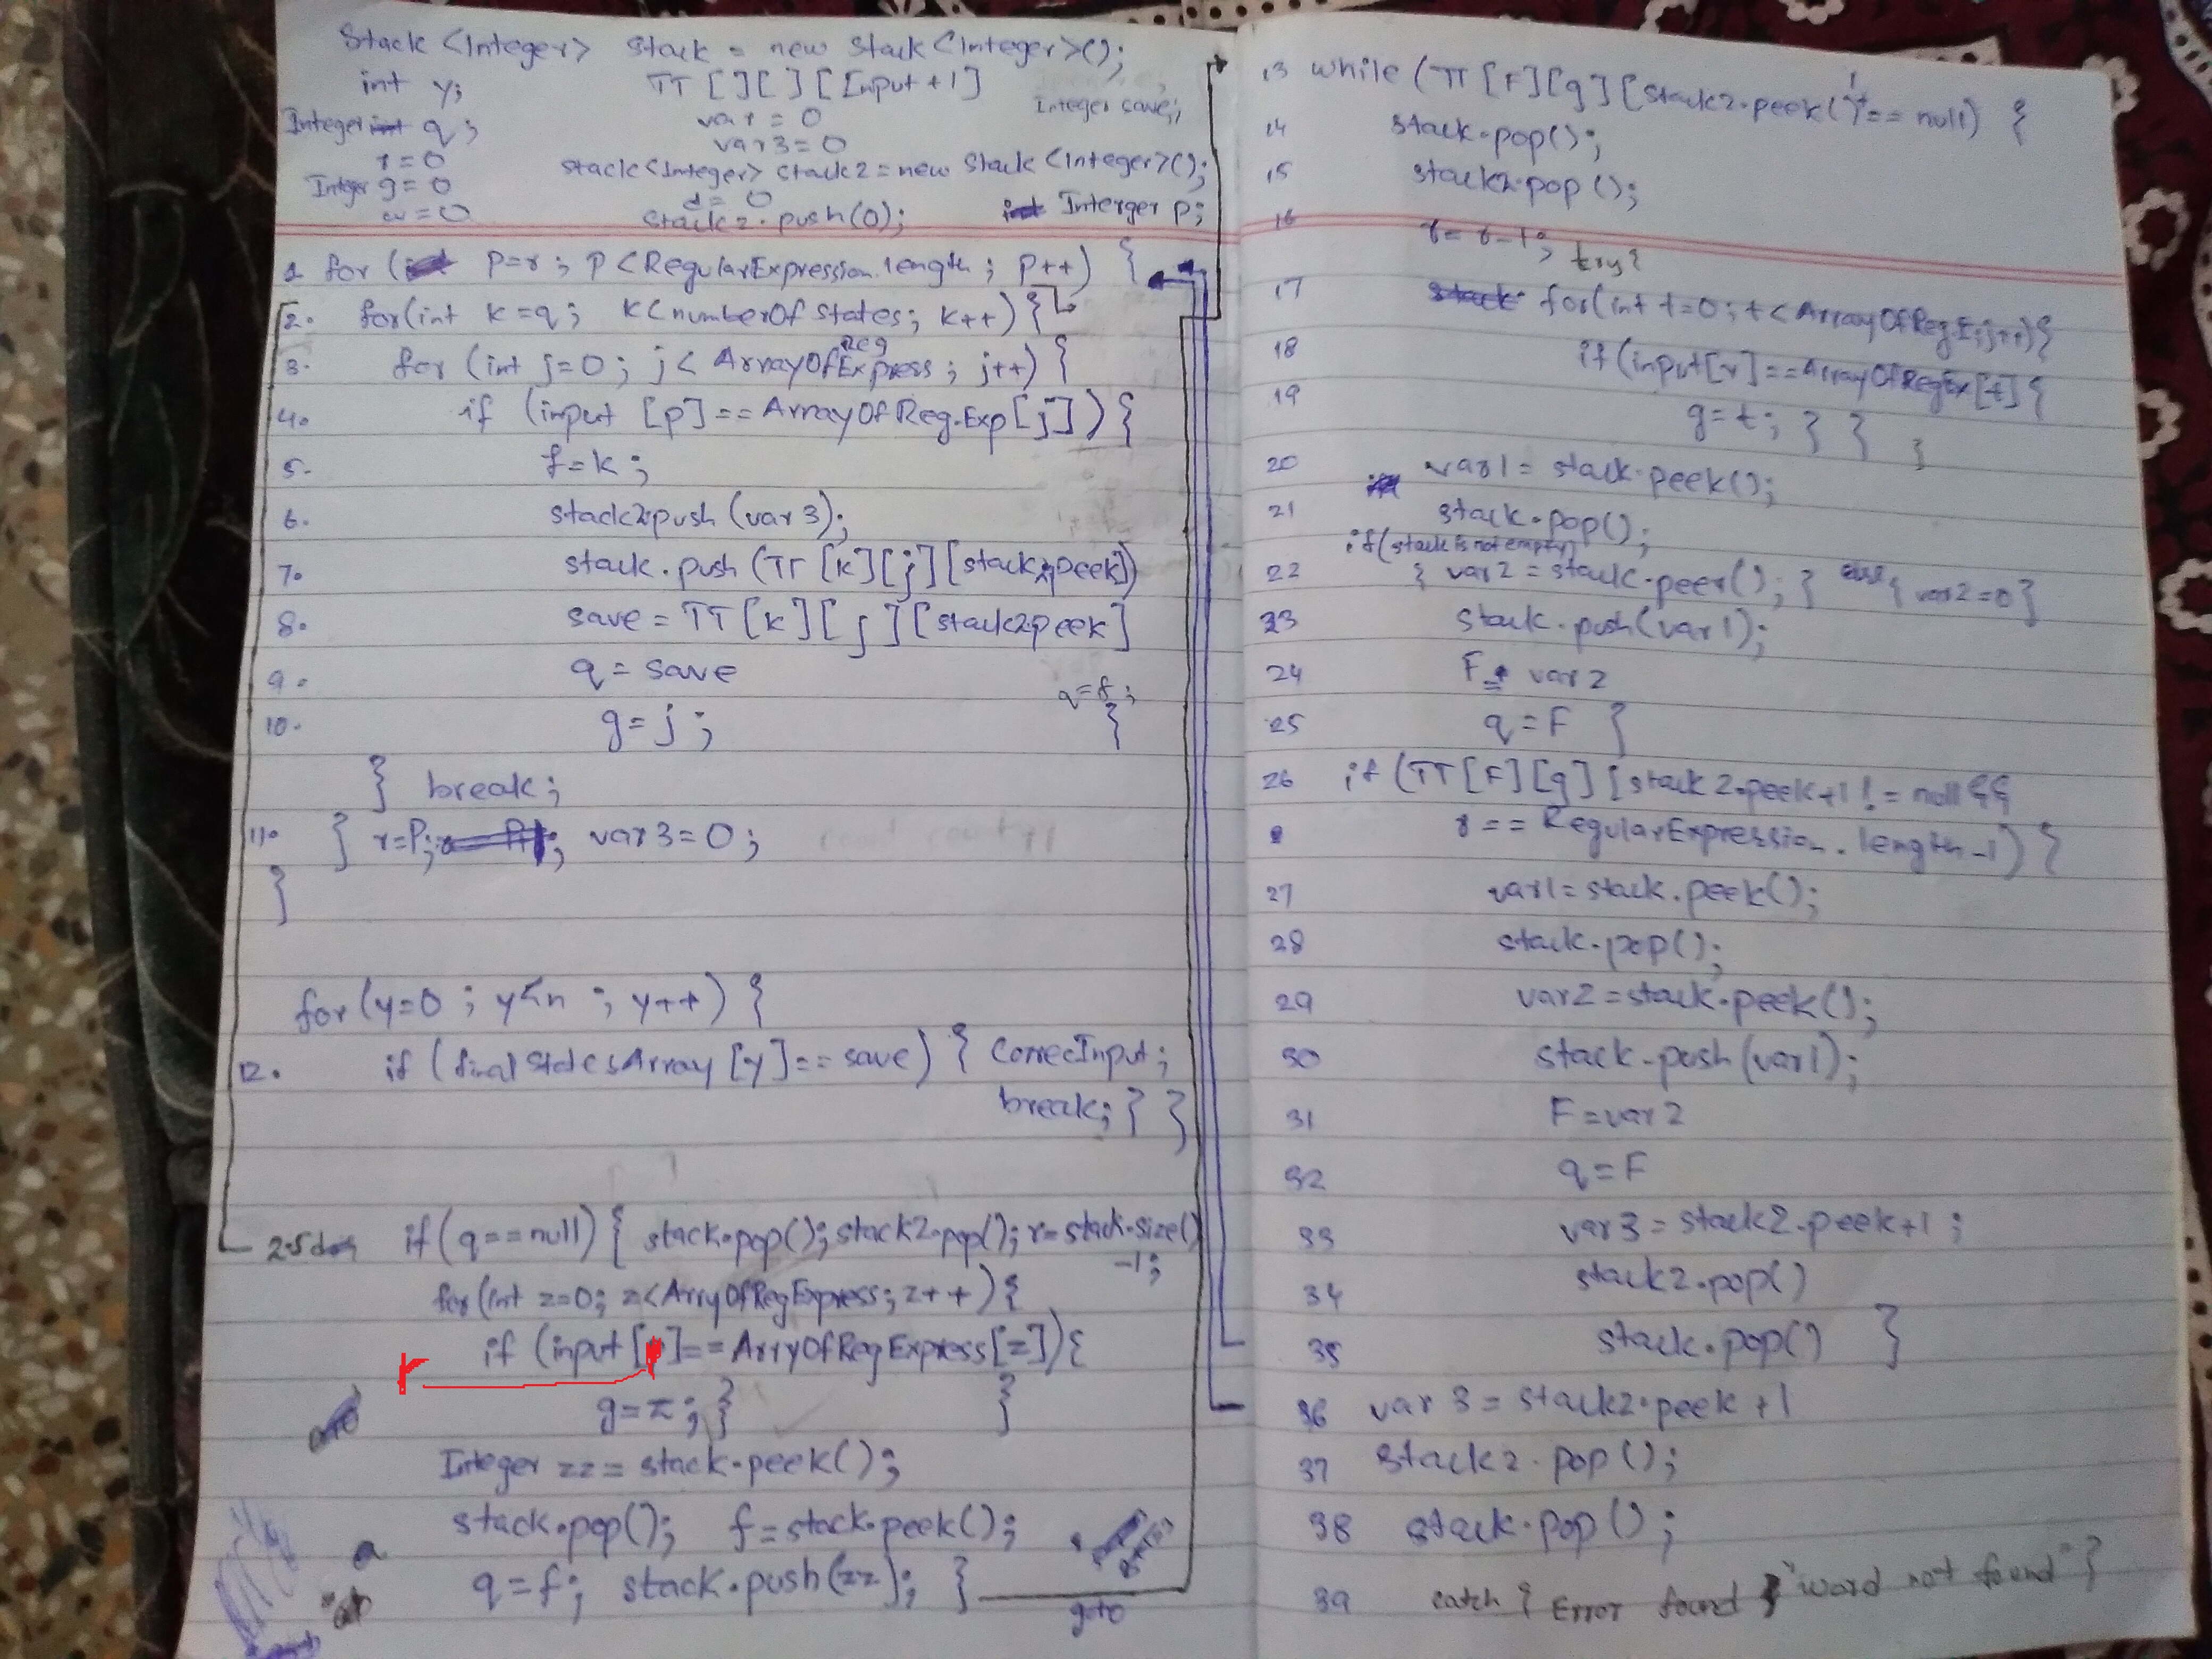 Stack <Integer> stack = new stack <Integer>();
int y; TT [ ][ ] [Input +1]
Integer q; var = 0 Integer save;
r=0 var3=0
Integer g=0 stack<Integer> stack2 = new stack <Integer>();
d= 0
stack2.push(0); Interger p;
1. for ( p=r ; p<RegularExpression.length ; p++) {
2. for(int k=q ; k<numberOf states; k++) {
3. for (int j=0 ; j< ArrayOfRegExpress ; j++) {
4. if (input [p]==ArrayOf Reg.Exp[j]) {
5. f=k ;
6. stack2.push (var 3);
7. stack.push (TT [k][j][stack2.peek])
8. save = TT [k][j][stack2peek]
9. q = save q=f ;
10. g=j ; }
} break;
11. } r=P; var3=0;
}
for (y=0 ; y<n ; y++) {
12. if (final StatesArray [y]==save) { CorrecInput;
break; } }
2.5 if (q==null) { stack.pop(); stack2.pop(); r=stack.size()
-1;
for(int z=0; z<ArryOfRegExpress; z++) {
if (input [ ]==ArryOfRegExpress[z]) {
r
g=z; } }
Integer zz = stack.peek();
stack.pop(); f=stack.peek();
q=f; stack.push(zz); }
goto
13 while (TT [F][g] [stack2.peek()+1== null) {
14 stack.pop();
15 stack2.pop ();
16 r= r-1; try{
17 for(int t=0; t<ArrayOfRegE; j++){
18 if (input[r]==ArrayOfRegEx[t]{
19 g=t; } } }
20 var1 = stack.peek();
21 stack.pop();
if(stack is not empty)
22 { var2 = stack.peer(); } else{ var2=0}
23 stack.push(var1);
24 F = var2
25 q=F }
26 if (TT[F][g] [stack 2.peek+1 != null &&
r == RegularExpression.length-1) {
27 var1= stack.peek();
28 stack.pop();
29 var2=stack.peek();
30 stack.push(var1);
31 F=var2
32 q=F
33 var3= stack2.peek+1 ;
34 stack2.pop()
35 stack.pop() }
36 var 3 = stack2.peek +1
37 stack2.pop ();
38 stack.pop () ;
39 catch { Error found "word not found" }